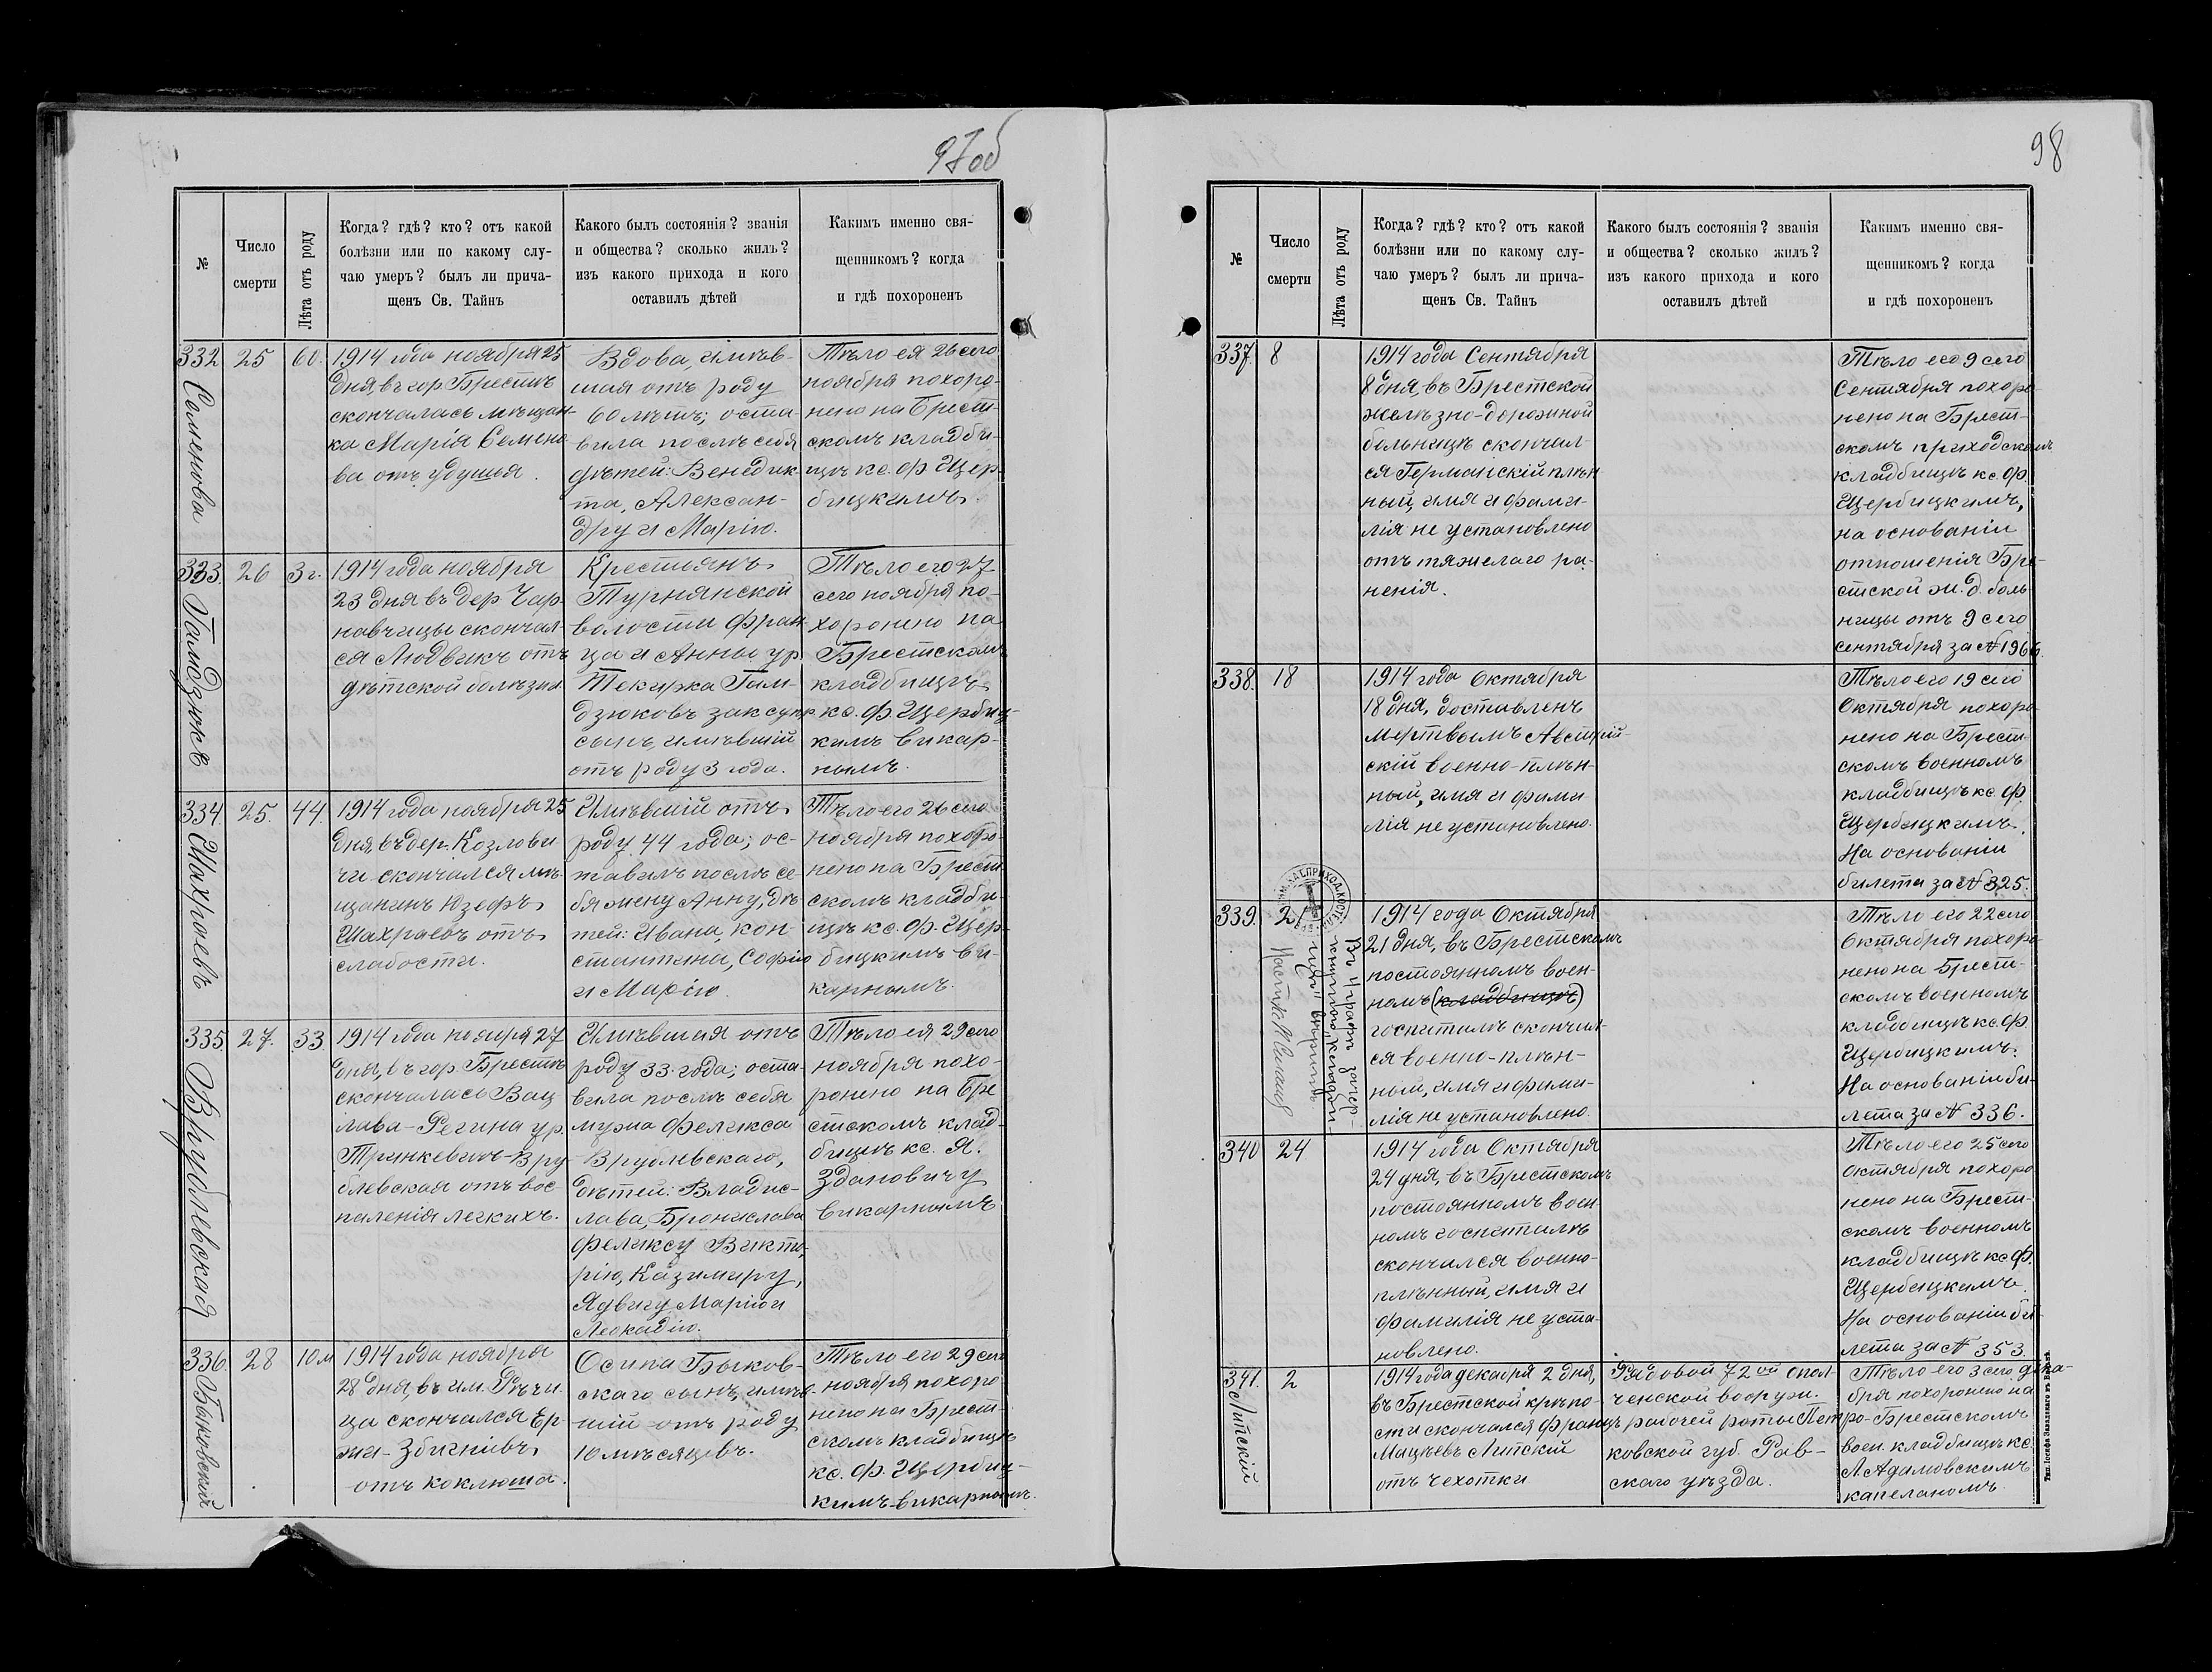 97об
№
Число
смерти
Лѣта отъ роду
Когда? гдѣ? кто? отъ какой
болѣзни или по какому слу-
чаю умеръ? былъ ли прича-
щенъ Св. Тайнъ
Какого былъ состоянія? званія
и общества? сколько жилъ?
изъ какого прихода и кого
оставилъ дѣтей
Какимъ именно свя-
щенникомъ? когда
и гдѣ похороненъ
332
Семенова
25
60.
1914 года ноября 25
дня, въ гор. Брестѣ
скончалась мѣщан-
ка Марія Семено-
ва отъ удушья.
Вдова, имѣв-
шая отъ роду
60 лѣтъ; оста-
вила послѣ себя
дѣтей: Венедик-
та, Алексан-
дру и Марію.
Тѣло ея 26 сего
ноября похоро-
нено на Брест-
скомъ кладби-
щѣ кс. Ф. Щер-
бицкимъ.
333.
Гамдзюкъ
26
3 г.
1914 года ноября
23 дня въ дер. Чар-
навчицы скончал-
ся Людвикъ отъ
дѣтской болѣзни.
Крестьянъ
Турнянской
волости Фран-
ца и Анны ур.
Гам-
дзюковъ
сынъ, имѣвшій
отъ роду 3 года.
Тѣло его 27
сего ноября по-
хоронено на
Брестскомъ
кладбищѣ
кс. Ф. Щербиц-
кимъ викар-
нымъ.
334.
Шахраевъ
25.
44.
1914 года ноября 25
дня, въ дер. Козлови-
чи скончался мѣ-
щанинъ Юзефъ
Шахраевъ отъ
слабости.
Имѣвшій отъ
роду 44 года; ос-
тавилъ послѣ се-
бя жену Анну, дѣ-
тей: Ивана, Кон-
стантина, Софію
и Марію.
Тѣло его 26 сего
ноября похоро-
нено на Брест-
скомъ кладби-
щѣ кс. Ф. Щер-
бицкимъ ви-
карнымъ.
335.
Врублевская
27.
33
1914 года ноября 27
дня, въ гор. Брестѣ
скончалась Вац-
лава-Регина ур.
Тринкевичъ-Вру-
блевская отъ вос-
паленія легкихъ.
Имѣвшая отъ
роду 33 года; оста-
вила послѣ себя
мужа Феликса
Врублевскаго,
дѣтей: Владис-
лава, Бронислава
Феликсу Викто-
рію, Казимиру,
Ядвигу, Марію и
Леокадію.
Тѣло ея 29 сего
ноября похо-
ронено на Бре-
стскомъ клад-
бищѣ кс. Я.
Здановичу
викарнымъ
336.
Быковскій
28
10 м
1914 года ноября
28 дня, въ им. Рѣчи-
ца скончался Ер-
жи-Збигнѣвъ
отъ коклюша.
Осипа Быков-
скаго сынъ, имѣв-
шій отъ роду
10 мѣсяцевъ.
Тѣло его 29 сего
ноября похоро-
нено на Брест-
скомъ кладбищѣ
кс. Ф. Щербиц-
кимъ-викарнымъ.
98
№
Число
смерти
Лѣта отъ роду
Когда? гдѣ? кто? отъ какой
болѣзни или по какому слу-
чаю умеръ? былъ ли прича-
щенъ Св. Тайнъ
Какого былъ состоянія? званія
и общества? сколько жилъ?
изъ какого прихода и кого
оставилъ дѣтей
Какимъ именно свя-
щенникомъ? когда
и гдѣ похороненъ
337.
8
1914 года Сентября
8 дня, въ Брестской
желѣзно-дорожной
больницѣ скончал-
ся Германскій плѣн-
ный, имя и фами-
лія не установлено
отъ тяжелаго ра-
ненія.
Тѣло его 9 сего
Сентября похоро-
нено на Брест-
скомъ приходскомъ
кладбищѣ кс. Ф.
Щербицкимъ,
на основаніи
отношенія Бре-
стской ж. д. боль-
ницы отъ 9 сего
сентября за №1966.
338.
18
1914 года Октября
18 дня, доставленъ
мертвымъ Австрій-
скій военно-плѣн-
ный, имя и фами-
лія не установлено.
Тѣло его 19 сего
Октября похоро-
нено на Брест-
скомъ военномъ
кладбищѣ кс. Ф.
Щербицкимъ.
На основаніи
билета за № 325.
339.
21
Въ 4 графѣ зачер-
кнутого „кладби-
щѣ" вѣрить
1914 года Октября
21 дня, въ Брестскомъ
постоянномъ воен-
номъ (кладбищѣ)
госпиталѣ скончал-
ся военно-плѣн-
ный, имя и фами-
лія не установлено.
Тѣло его 22 сего
Октября похоро-
нено на Брест-
скомъ военномъ
кладбищѣ кс. Ф.
Щербицкимъ.
На основаніи би-
лета за № 336.
340
24
1914 года Октября
24 дня, въ Брестскомъ
постоянномъ воен-
номъ госпиталѣ
скончался военно-
плѣнный, имя и
фамилія не уста-
новлено.
Тѣло его 25 сего
Октября похоро-
нено на Брест-
скомъ военномъ
кладбищѣ кс. Ф.
Щербицкимъ.
На основаніи би-
лета за № 353.
341.
Липскій
2
1914 года декабря 2 дня,
въ Брестской крѣпо-
сти скончался Францъ
Мацѣевъ Липскій
отъ чехотки
Рядовой 72ой опол-
ченской вооруж.
рабочей роты Петро-
ковской губ. Рав-
скаго уѣзда.
Тѣло его 3 сего дека-
бря похоронено на
Брестскомъ
воен. кладбищѣ кс.
Л. Адамовскимъ
капеланомъ.